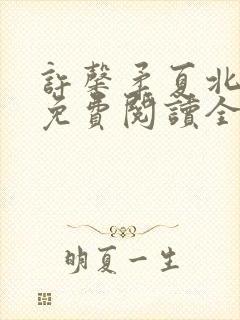 許馨矛夏北
免費閱讀全
明夏一生